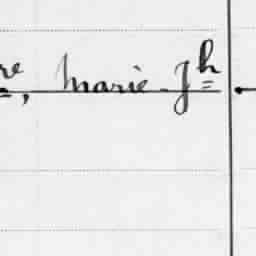 re, Marie-Jh